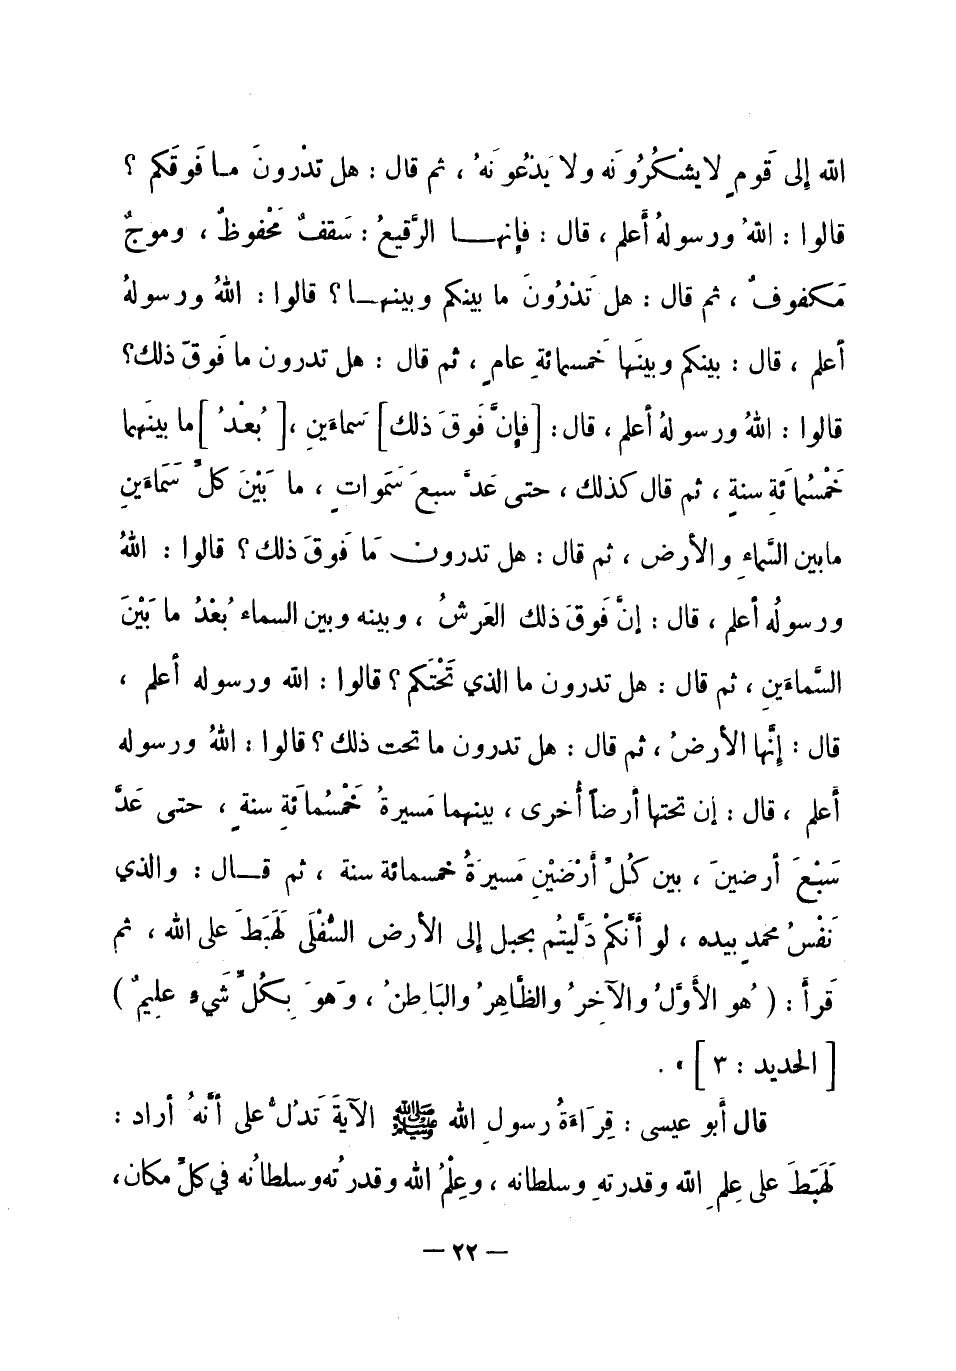 الله إلى قَومٍ لا يشْكُرُونَه ولا يَدْعُونَهُ ، ثم قال : هل تدْرونَ ما فَوقَكم ؟
قالوا : اللهُ ورسولهُ أَعلم ، قال : فإِنهـا الرَّقيعُ : سَقفٌ مَحْفوظٌ ، وموجٌ
مَكفوفٌ ، ثم قال : هل تَدْرُونَ ما بينكم وبينهـا ؟ قالوا : اللهُ ورسولهُ
أعلم ، قال : بينكم وبينَها خَمسمائةِ عامٍ ، ثم قال : هل تدرون ما فَوقَ ذلك؟
قالوا : اللهُ ورسولهُ أعلم ، قال : [فإِنَّ فَوقَ ذلك] سَماءَينِ ،[ بُعْدُ ]ما بينَهما
خَمْسُمائَةِ سنةٍ ، ثم قال كذلك ، حتى عَدَّ سبعَ سَمَواتٍ ، ما بَيْنَ كلِّ سَمَاءَينِ
مابين السَّماءِ والأرض ، ثم قال : هل تدرون مَا فَوقَ ذلك ؟ قالوا : اللهُ
ورسولُه أعلم ، قال : إنَّ فَوقَ ذلك العَرشُ ، وبينه وبين السماء بُعْدُ ما بَيْنَ
السَّماءَينِ ، ثم قال : هل تدرون ما الذي تَحْتَكم ؟ قالوا : الله ورسوله أعلم ،
قال : إنَّها الأرضُ ، ثم قال : هل تدرون ما تحت ذلك ؟ قالوا : اللهُ ورسوله
أَعلم ، قال : إن تحتها أرضاً أُخرى ، بينهما مَسيرةُ خَمْسُمائَةِ سنةٍ ، حتى عَدَّ
سَبْعَ أرضينَ ، بين كُلِّ أَرْضَيْنِ مَسيرَةُ خمسمائة سنة ، ثم قـال : والذي
نَفْسُ محمدٍ بيده ، لو أَنَّكمْ دَلَّيتُم بحبل إلى الأرض السُّفْلَى لَهَبَطَ على الله ، ثم
قَرأَ : ( هُو الأَوَّلُ والآخِرُ والظَّاهِرُ والبَاطِنُ ، وَهوَ بِكُلِّ شَيءٍ علِيمٌ )
[ الحديد : ٣ ] » .
قال أَبو عيسى : قِرَاءَةُ رسولِ الله ﷺ الآيةَ تَدُلُّ على أَنَّهُ أراد :
لَهَبَطَ على عِلمِ الله وقدرتهِ وسلطانه ، وعِلْمُ الله وقدرتُه وسلطانُه في كلِّ مكان،
— ٢٢ —